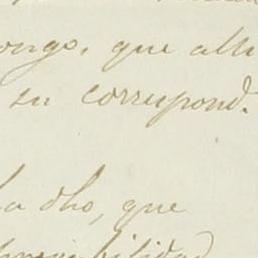 ongo, que alli
su correspond.
a dho, que